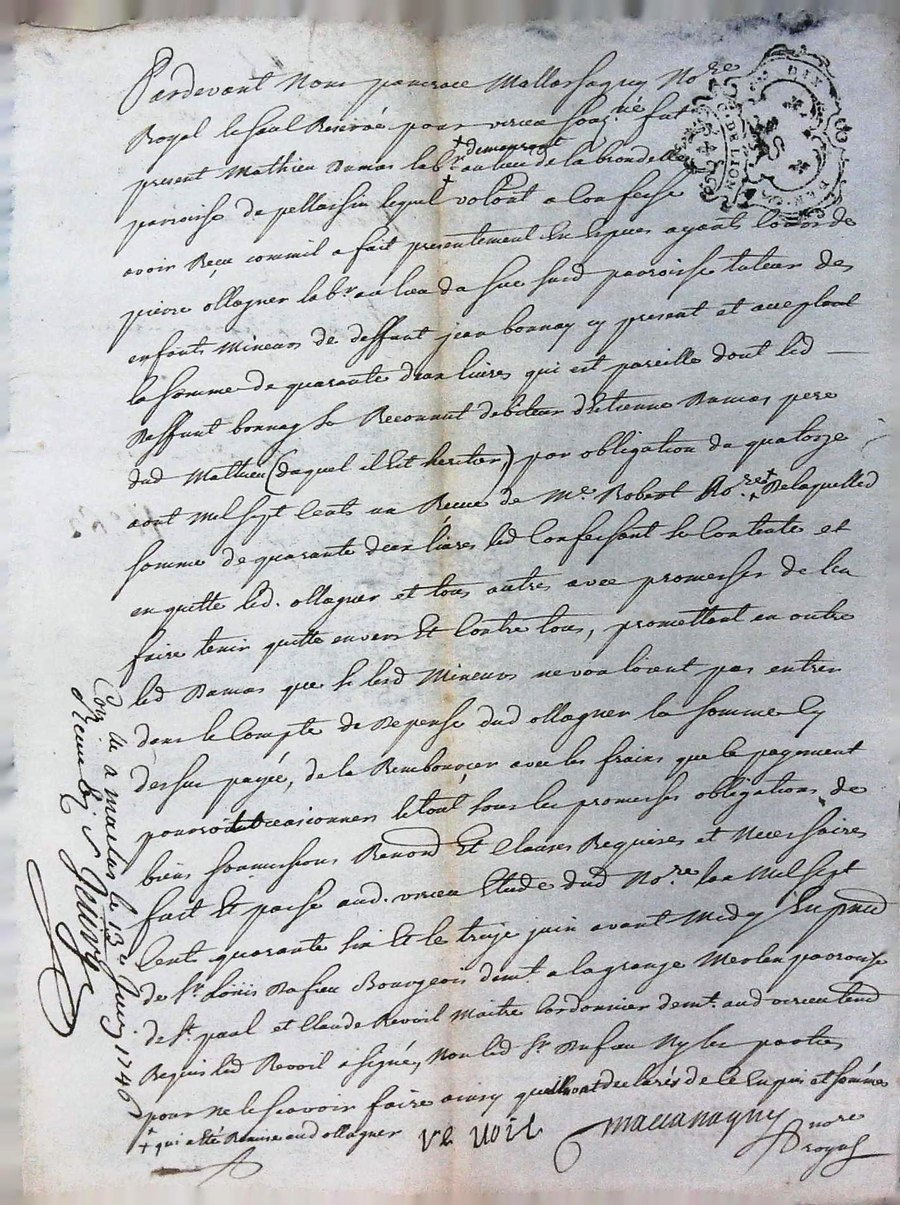 Pardevant Nous pancrace Mallassagny No.re
Royal le seul Reservé pour virieu sous né fut
present Mathieu Dumas lab.r + demeurant au lieu de la brondelle
parroisse de pellassin lequel volont a confessé
avoir Reçu comm'il a fait presentement En Especes ayants Cours de
pierre ollagner lab.r au lieu du suc susd parroisse tuteur des
enfants Mineurs de deffunt jean bonnay cy present et acceptant
la somme de quarante deux livres qui est pareille dont led
deffunt bonnay se Reconnut debiteur d'Etienne Dumas pere
dud Mathieu (duquel il Est heritier,) par obligation du quatorze
aout Mil sept Cents un Recue de M.e Robert No.re + De laquelled
somme de quarante deux livres led Confessant se Contente et
en quitte led. ollagner et tous autres avec promesses de l'en
faire tenir quitte envers Et Contre tous, promettant en outre
led Dumas que si lesd Mineurs ne vouloient pas entrer
dans le Compte de Depense dud ollagner la somme Cy
dessus payée, de la Rembourcer avec les fraix que le payement
pourroit occasionner le tout sous les promesses obligations de
biens soumissions Renons Et Clauses Requises et Necessaires
fait Et passé aud. virieu Etude dud No.re l'an Mil sept
Cent quarante six Et le treize juin avant Midy En pnce
de S.r Loüis Dafieu Bourgeois dem.t a la grange Merlen parroisse
de S.t paul et Claude Revoil Maitre Cordonnier dem.t aud virieu temd
Requis led Revoil a signé, Non led S.r Ny les parties
pour ne le sçavoir faire ainsy qu'ils ont declarés de ce Enquis et sommés
+ qui a été Remise aud ollagner
re voil
Mallassagny
nore
royal
DIX
G. DE LION
Con.lé a maclas le 13.e Juin 1746
Reçu